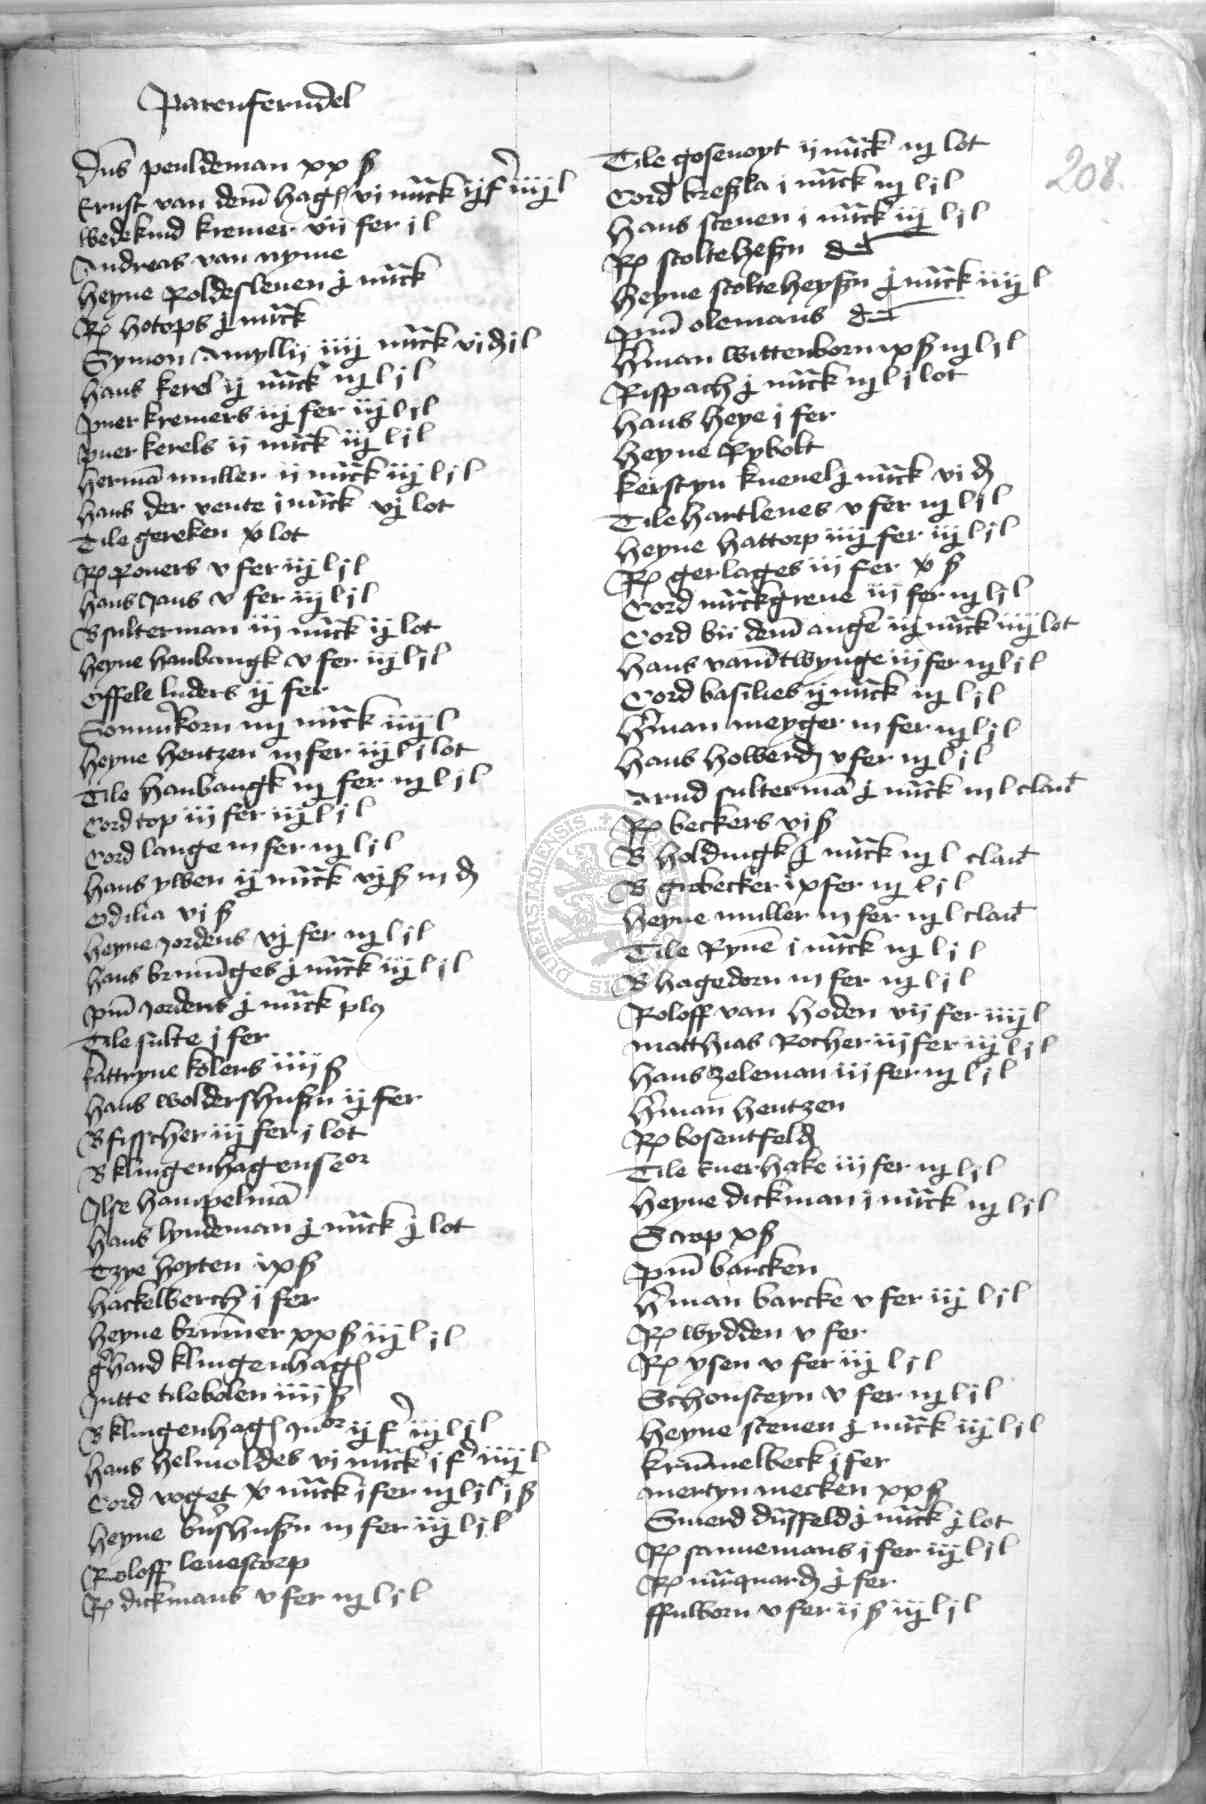 Patenferndel
Dns penldeman xx ß
Ernst van dem hagen vi marck iij f iiij l
Wedekind kremer vii fer j l
Andreas van nyme
Heyne Roldesleuen j marck
R hotops j marck
Symon iiij marck vj d j l
Hans kerel ij marck iij l j l
puer kremers iij fer iij l j l
puer kerels ij marck iij l j l
Herman muller ij marck iij l j l
Hans der vente j marck vj lot
Tile gereken x lot
R Roners v fer iij l j l
Hans Jans v fer iij l j l
B sulterman iij marck ij lot
Heyne hanbangk v fer iij l j l
Effele luders ij fer
Somerkorn iij marck iiij l
Heyne hentzen iij fer iij l j lot
Tile hanbangk iij fer iij l j l
Cord top iij fer iij l j l
Cord lange iij fer iij l j l
Hans ywen ij marck vj ß iij d
Odilia vj ß
Heyne Jordens vj fer iij l j l
Hans bruniges j marck iij l j l
pueri Jordens j marck
Tile sulte j fer
kattryne kolers iiij ß
Hans woldershußn ij fer
B fisscher iij fer j lot
B klingenhagen senor
Ilse hampelman
Hans lyndeman j marck j lot
Tzye hoyten ix ß
Hackelberch j fer
Heyne brunner xx ß iij l j l
Gerhard klingenhagen
Jutte tilebolen iiij ß
B klingenhagen Junor ij f iij l j l
Hans helmoldes vi marck j f iiij l
Cord voget x marck j fer iij l j l j ß
Heyne burßhußn iij fer iij l j l
Roloff leuestorp
R dickmans v fer iij l j l
Tile gosenoyt ij marck iij lot
Cord breßla j marck iij l j l
Hans steuen j marck iij l j l
R stolteheßn dt
Heyne stolteheyßn j marck iiij l
pueri olemans dt
Herman wittenborn ix ß iij l j l
Rispach j marck iij l j lot
Hans heye j fer
Heyne Rybolt
Kerstyn kneuel j marck vi d
Tile hartleues v fer iij l j l
Heyne hattorp iiij fer iij l j l
R gerlages iij fer x ß
Cord marckgreue iij fer iij l j l
Cord bii dem anger iij marck iiij lot
Hans vamtwynge iij fer iij l j l
Cord basilies ij marck iij l j l
Herman meyger iij fer iij l j l
Hans howerd v fer iij l j l
Arnd sulterman j marck iij l claut
R beckers vi ß
B holdingk j marck iij l claut
B grobecker ix fer iij l j l
Heyne muller iij fer iij l claut
Tile Ryne j marck iij l j l
B hagedorn iij fer iij l j l
Roloff van hoden vij fer iiij l
Matthias Rocher iij fer iij l j l
Hans zeleman iij fer iij l j l
Herman hentzen
R bosentfeld
Tile knerhake iij fer iij l j l
Heyne dickman j marck iij l j l
Strop x ß
pueri barcken
Herman barcke v fer iij l j l
R wydden v fer
R ysen v fer iij l j l
Schonsteyn v fer iij l j l
Heyne steuen j marck iij l j l
Krummelbeck j fer
Mertyn mecken xx ß
Smerd dusfeld j marck j lot
R sannemans j fer iij l j l
R marquard j fer
ffulborn v fer ij ß iij l j l
208.